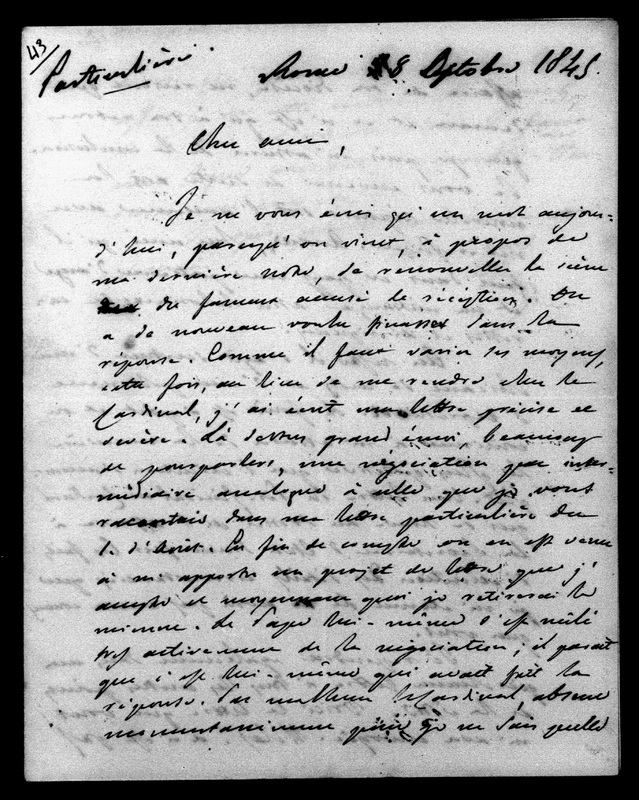 43
Particulière
Rome 8 Octobre 1845.
Cher ami,
Je ne vous écris qu'un mot aujour=
d'hui, parcequ'on vient, à propos de
ma dernière note, de renouveller la scène
du fameux accusé de réception. On
a de nouveau voulu finasser dans la
réponse. Comme il faut varier ses moyens,
cette fois, au lieu de me rendre chez le
Cardinal, j'ai écrit une lettre précise et
sévère. Là dessus grand émoi, beaucoup
de pourparlers, une négociation par inter=
médiaire analogue à celle que je vous
racontais dans ma lettre particulière du
1. d'Août. En fin de compte on en est venu
à m'apporter un projet de lettre que j'
accepte et moyennant quoi je retirerai la
mienne. Le Pape lui-même s'est mêlé
très activement de la négociation; il paraît
que c'est lui-même qui avait fait la
réponse. Par malheur le Cardinal, absent
momentanément pour je ne sais quelle